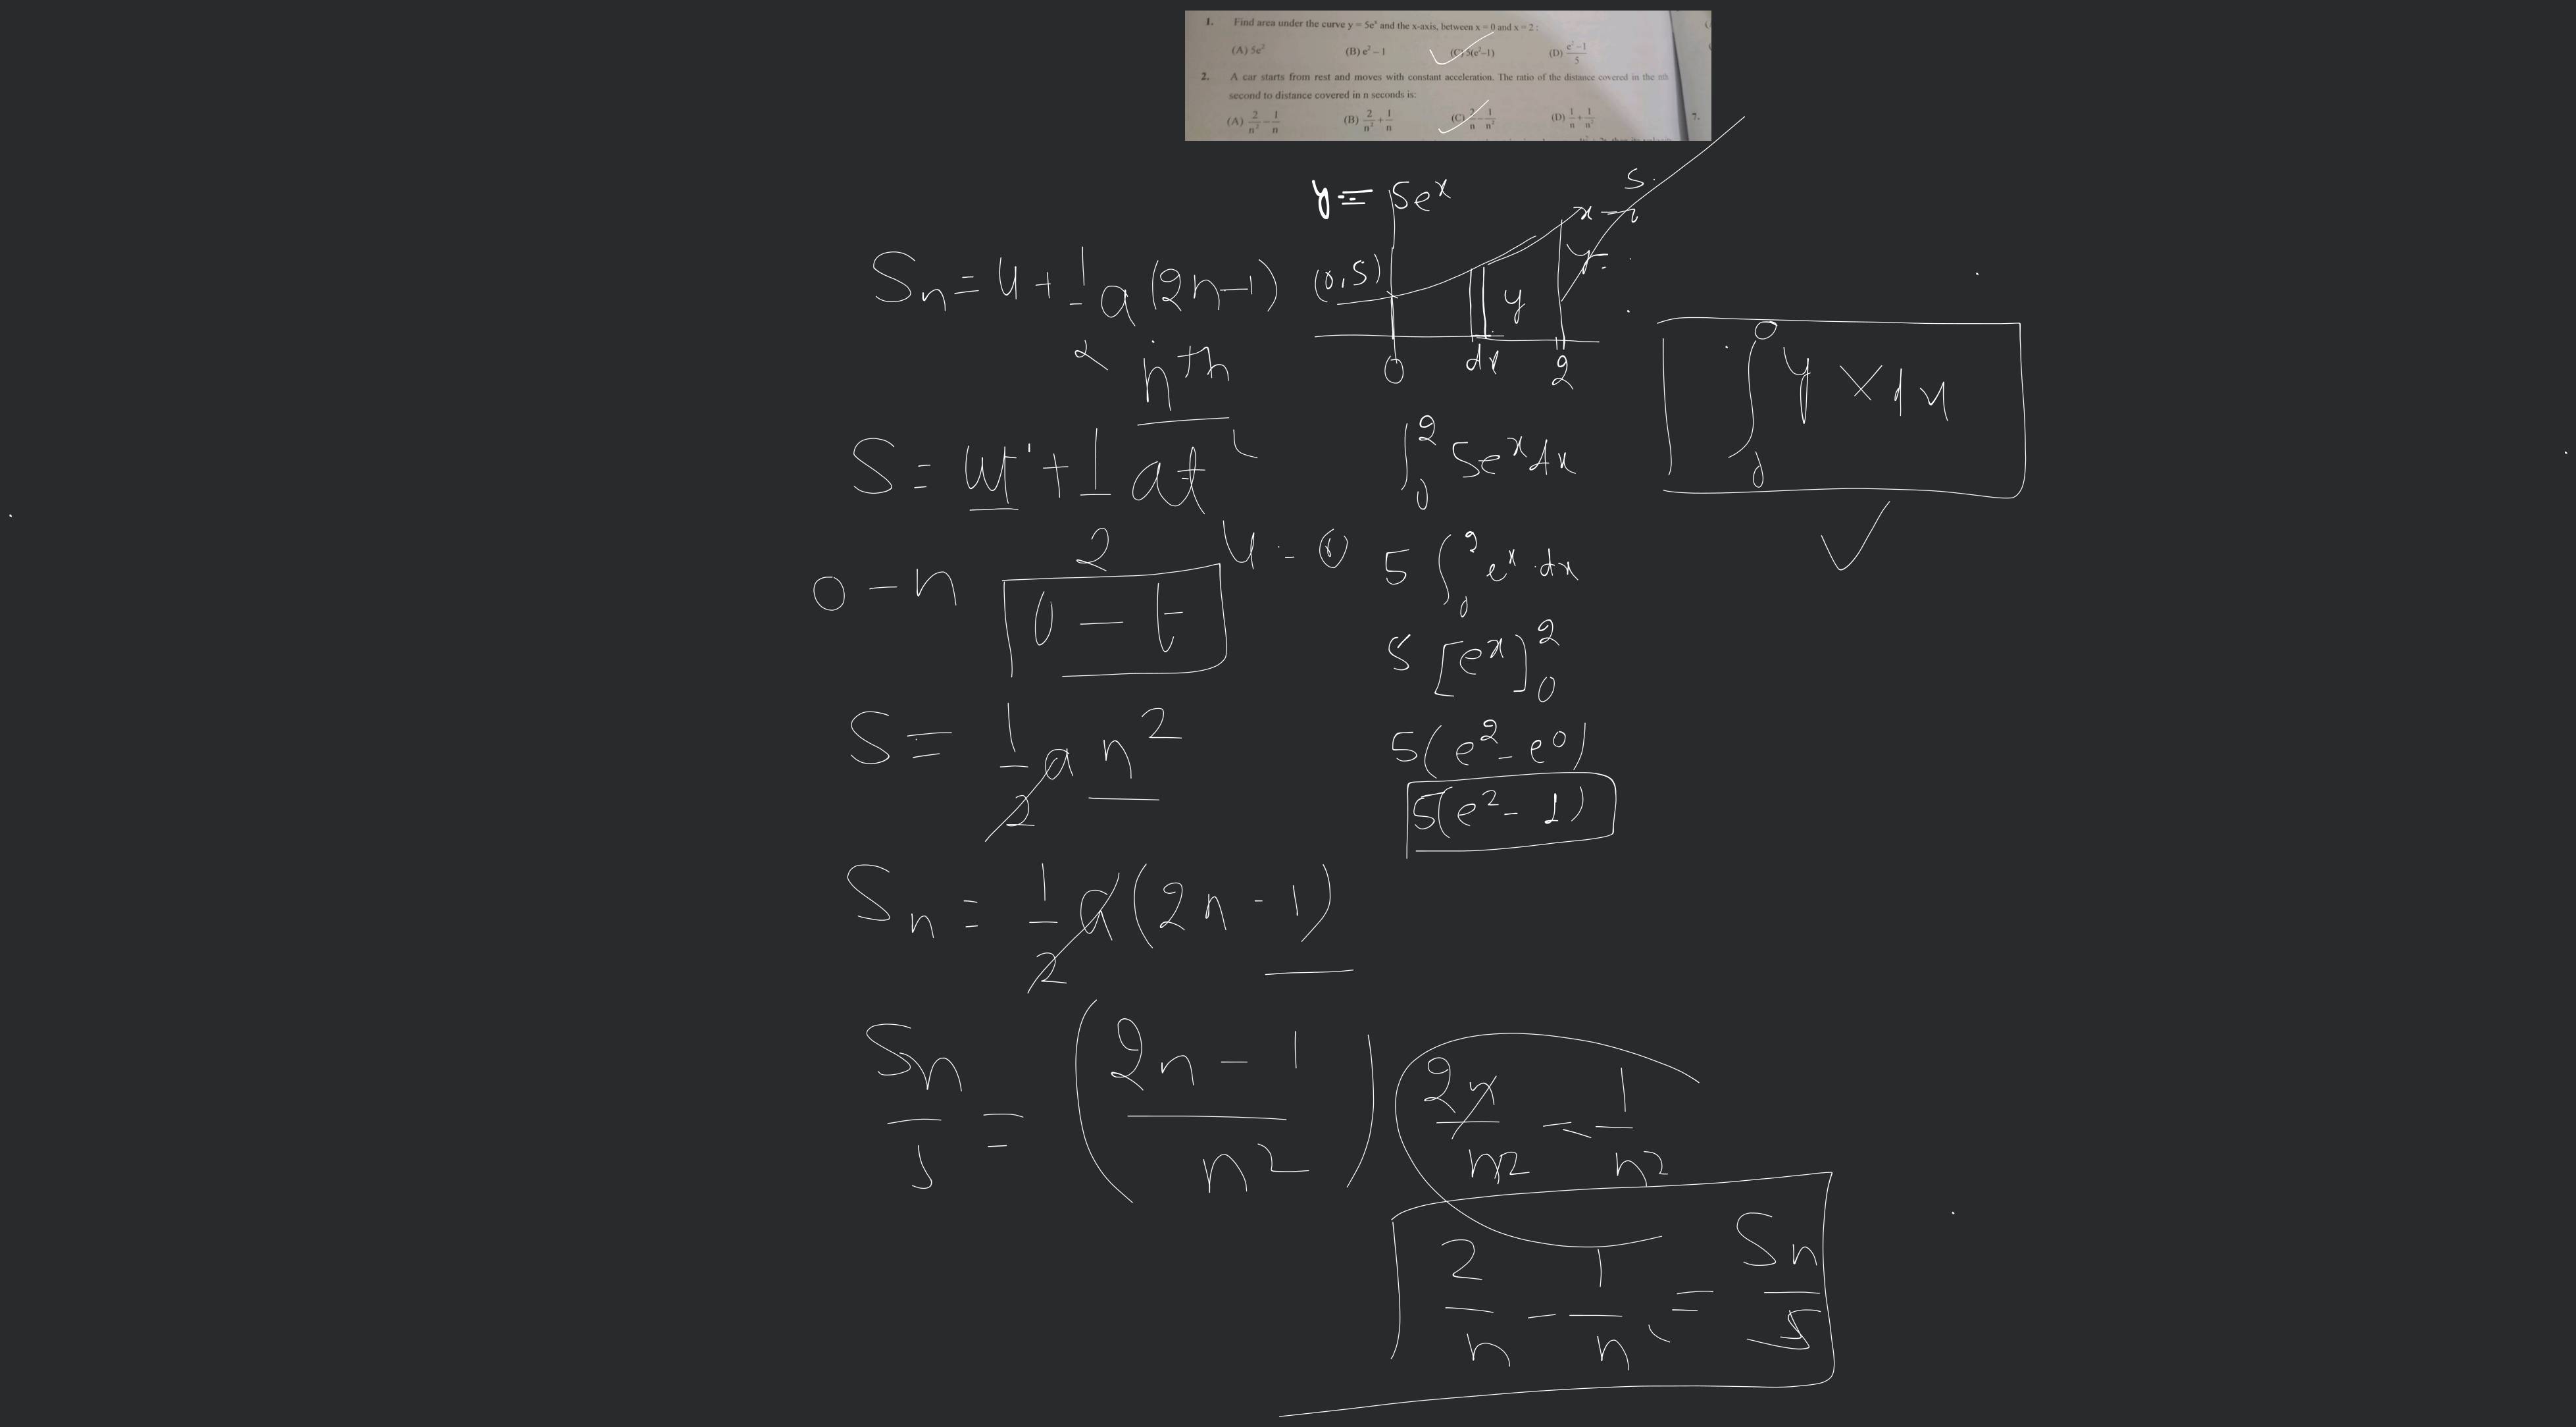 1. Find area under the curve y = 5eˣ and the x-axis, between x = 0 and x = 2 :
(A) 5e² (B) e² – 1 (C) 5(e²–1) (D) (e² – 1)/5
2. A car starts from rest and moves with constant acceleration. The ratio of the distance covered in the nth
second to distance covered in n seconds is:
(A) 2/n² – 1/n (B) 2/n² + 1/n (C) 2/n – 1/n² (D) 1/n + 1/n²
7.
y = 5eˣ
S
Sₙ = u + 1/2 a(2n–1)
nᵗʰ
(0,5)
y
0 dx 2
∫ y × dx
S = ut + 1/2 at²
u = 0
0 – n
0 – t
S = 1/2 a n²
Sₙ = 1/2 a (2n – 1)
Sₙ/S = (2n – 1 / n²)
∫₀² 5eˣ dx
5 ∫₀² eˣ . dx
5 [eˣ]₀²
5(e² – e⁰)
5(e² – 1)
2n/n² – 1/n²
2/n – 1/n² = Sₙ/S